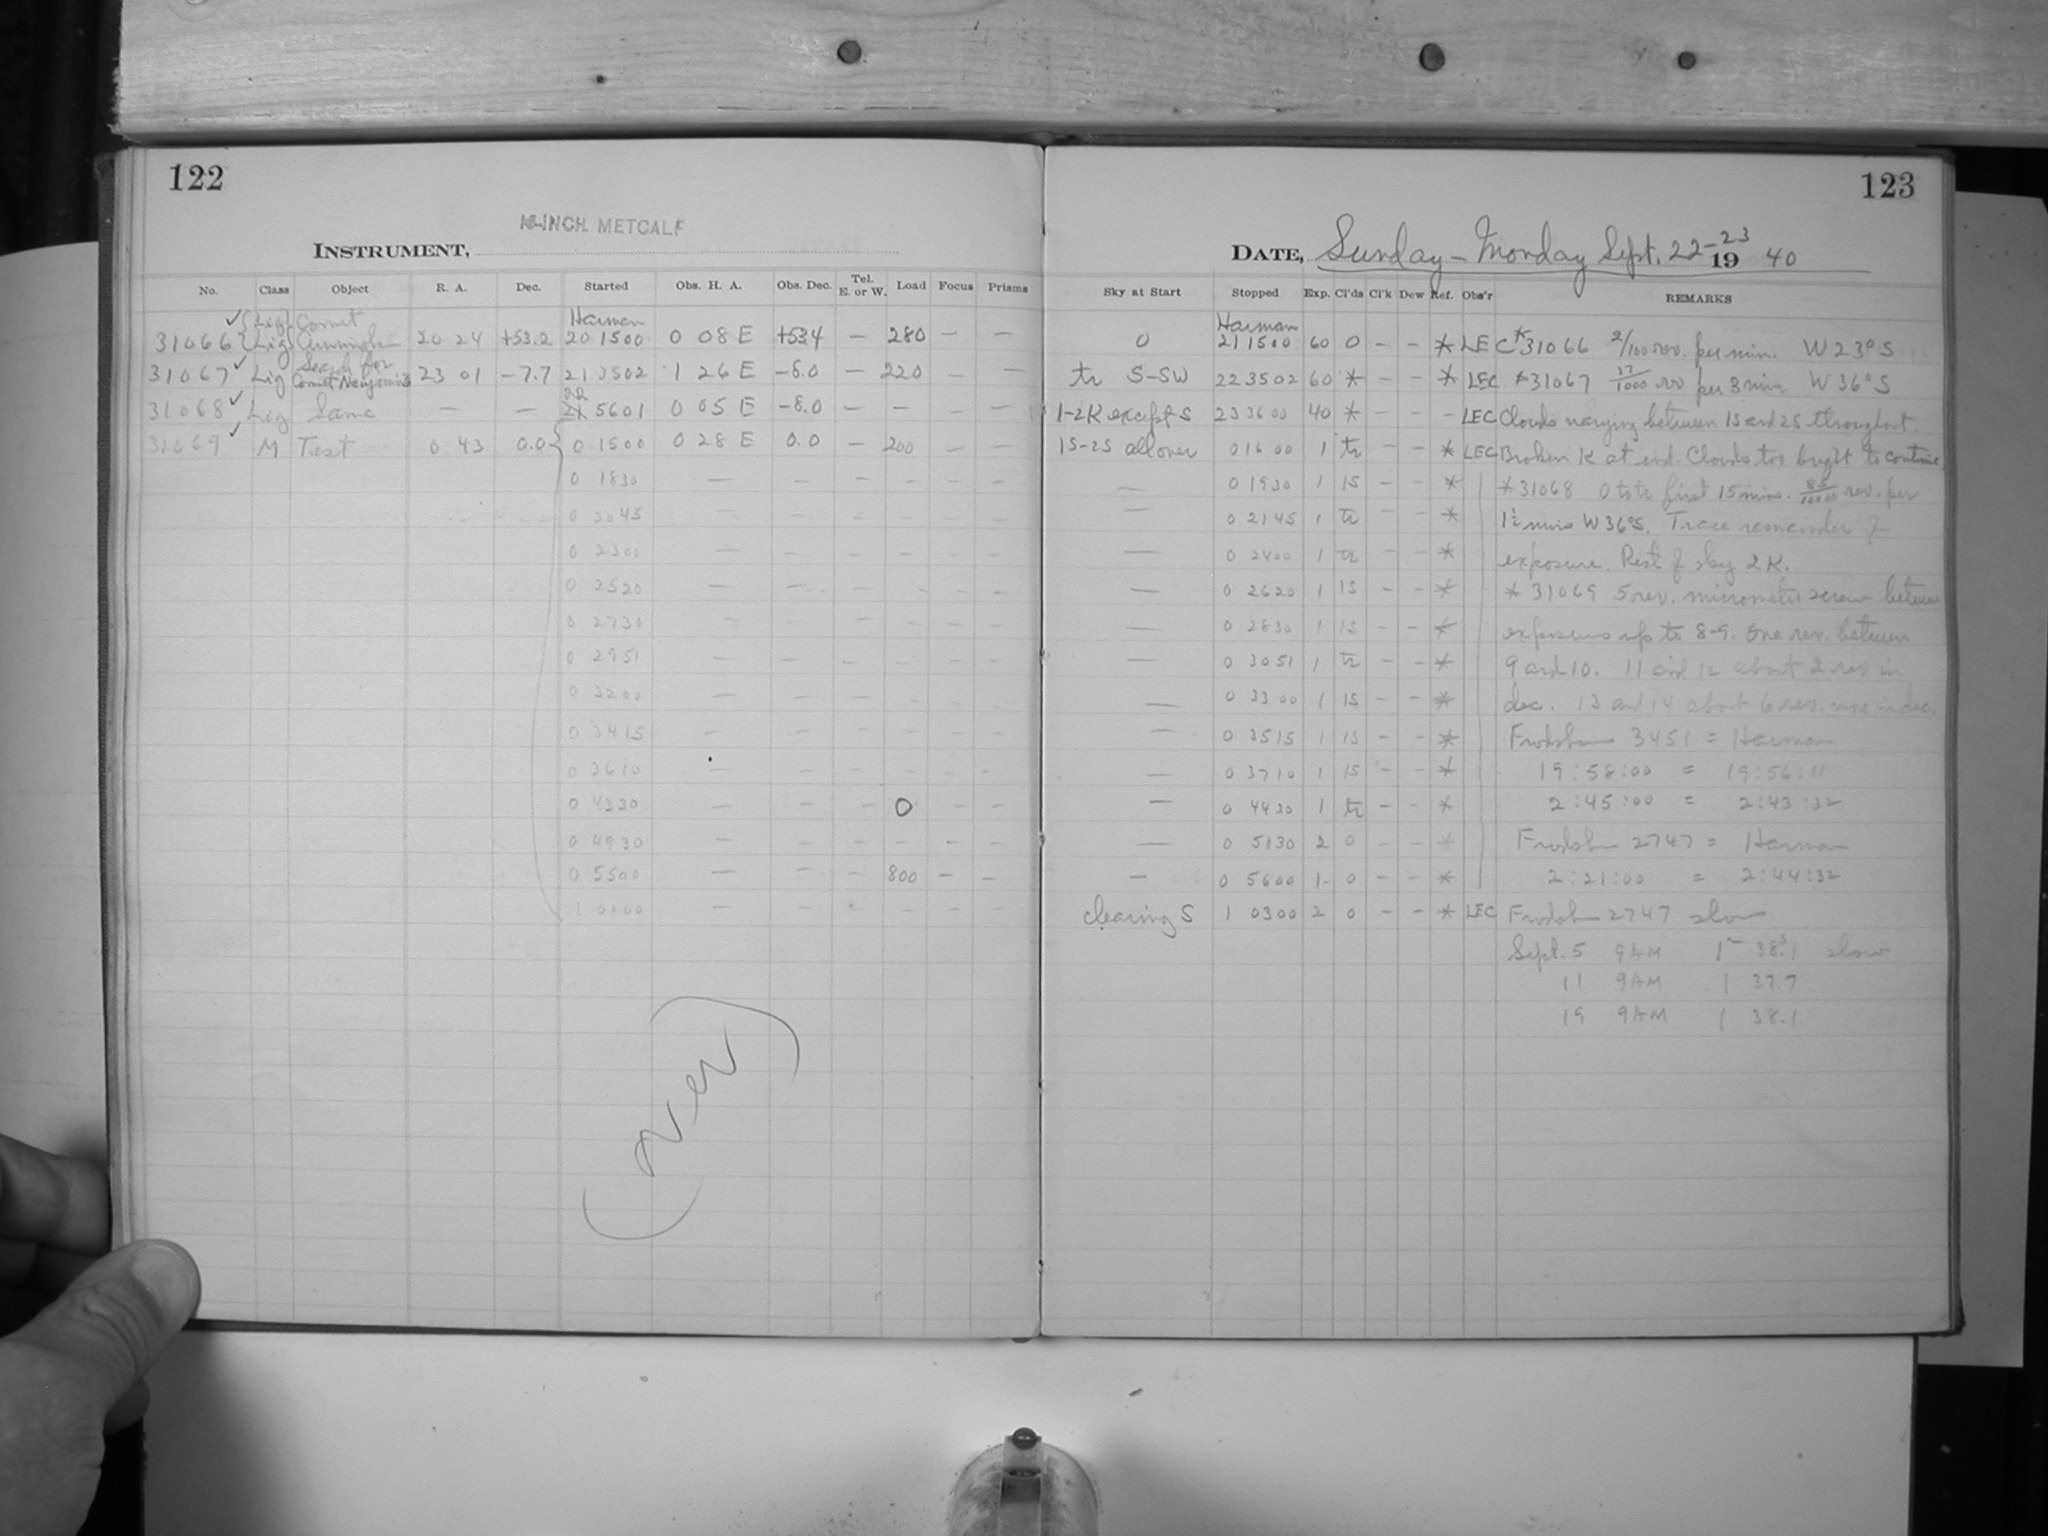 122
INCH METCALF
INSTRUMENT,
No. Class Object R. A. Dec. Started Obs. H. A. Obs. Dec. Tel. E. or W. Load Focus Prisms
Comet Harman
31066 ✓ Lig Cunningham 20 24 +53.2 20 1500 0 08 E +53.4 — 280 — —
Search for
31067 ✓ Lig Comet 23 01 -7.7 21 3502 1 26 E -8.0 — 220 — —
22
31068 ✓ Lig Same — — 21 5601 0 05 E -8.0 — — — —
31069 ✓ M Test 0 43 0.0 { 0 1500 0 28 E 0.0 — 200 — —
0 1830 — — — — — —
0 2045 — — — — — —
0 2300 — — — — — —
0 2520 — — — — — —
0 2730 — — — — — —
0 2951 — — — — — —
0 3200 — — — — — —
0 3415 — — — — — —
0 3610 — — — — — —
0 4330 — — — 0 — —
0 4930 — — — — — —
0 5500 — — — 800 — —
1 0100 — — — — — —
(over)
123
DATE, Sunday - Monday Sept. 22-23 19 40
Sky at Start Stopped Exp. Cl'ds Cl'k Dew Ref. Obs'r REMARKS
Harman
0 21 1500 60 0 — — * LEC *31066 2/100 rev. per min. W 23° S
tr S-SW 22 3502 60 * — — * LEC *31067 17/1000 rev per 3 min W 36° S
1-2K except S 23 3600 40 * — — — LEC Clouds varying between 1S and 2S throughout.
1S-2S all over 0 1600 1 tr — — * LEC Broken K at end. Clouds too bright to continue.
— 0 1930 1 1S — — * *31068 0 to tr first 15 mins. 85/10000 rev. per
— 0 2145 1 tr — — * 1½ mins W 36° S. Trace remainder of
— 0 2400 1 tr — — * exposure. Rest of sky 2 K.
— 0 2620 1 1S — — * *31069 5 rev. micrometer screw between
— 0 2830 1 1S — — * exposures up to 8-9. One rev. between
— 0 3051 1 tr — — * 9 and 10. 11 and 12 about 2 rev in
— 0 3300 1 1S — — * dec. 13 and 14 about 6 rev. more in dec.
— 0 3515 1 1S — — * Frodsham 3451 = Harman
— 0 3710 1 1S — — * 19:58:00 = 19:56:11
— 0 4430 1 tr — — * 2:45:00 = 2:43:32
— 0 5130 2 0 — — * Frodsham 2747 = Harman
— 0 5600 1 0 — — * 2:21:00 = 2:44:32
clearing S 1 0300 2 0 — — * LEC Frodsham 2747 slow
Sept. 5 9AM 1ᵐ 38ˢ.1 slow
11 9AM 1 37.7
19 9AM 1 38.1